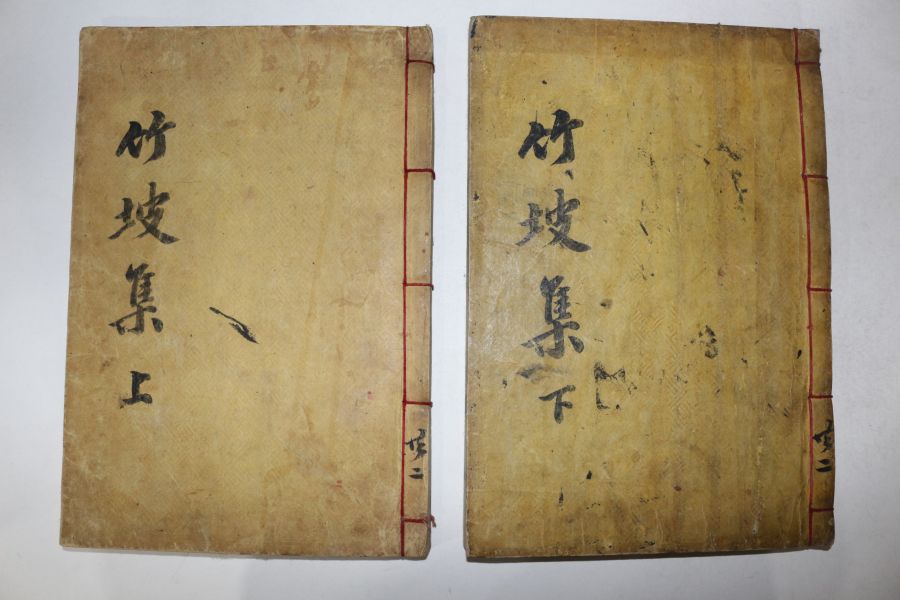 竹坡集 上
共二
竹坡集 下
共二